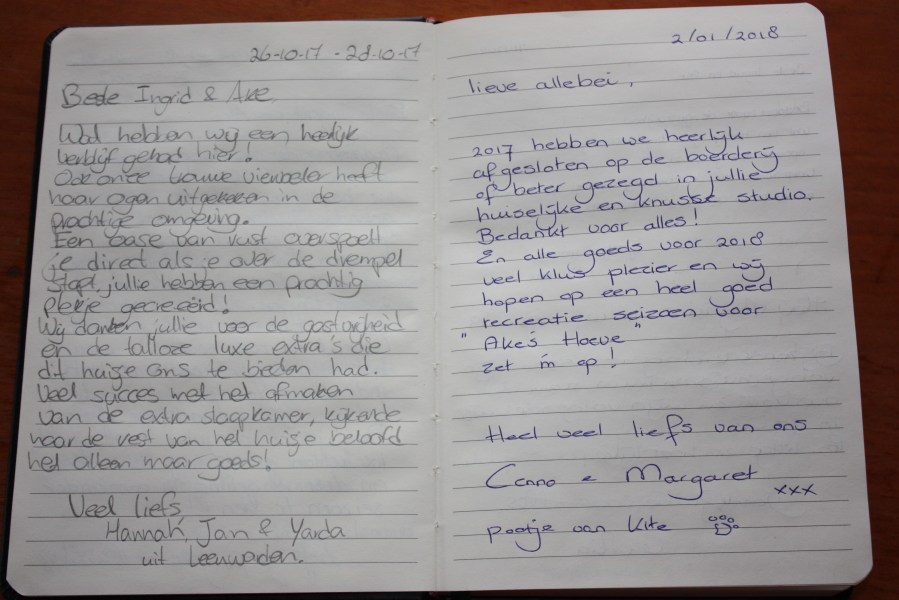 26-10-17 - 28-10-17
Beste Ingrid & Ake
Wat hebben wij een heerlijk
verblijf gehad hier!
Ook onze trouwe viervoeter heeft
haar ogen uitgekeken in de
prachtige omgeving.
Een oase van rust overspoelt
je direct als je over de drempel
stapt, jullie hebben een prachtig
plekje gecreëerd!
Wij danken jullie voor de gastvrijheid
en de talloze luxe extra's die
dit huisje ons te bieden had.
Veel succes met het afmaken
van de extra slaapkamer, kijkende
naar de rest van het huisje belooft
het alleen maar goeds!
Veel liefs
Hannah, Jan & Yarda
uit Leeuwarden.
2/01/2018
lieve allebei,
2017 hebben we heerlijk
afgesloten op de boerderij
of beter gezegd in jullie
huiselijke en knusse studio.
Bedankt voor alles!
En alle goeds voor 2018
veel klus plezier en wij
hopen op een heel goed
recreatie seizoen voor
"Ake's Hoeve"
zet 'm op!
Heel veel liefs van ons
Margaret
xxx
pootje van Kite